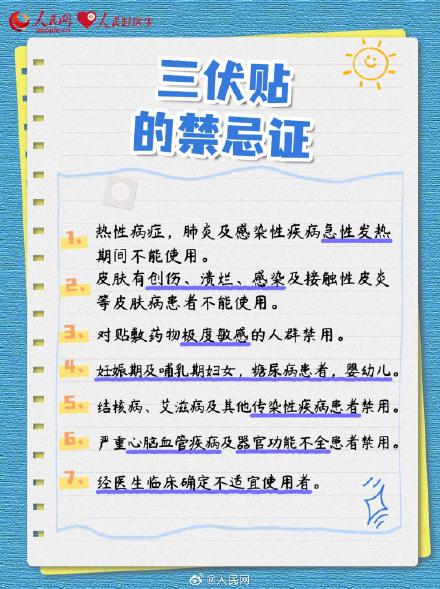 人民网
people.cn
人民好医生
三伏贴
的禁忌证
1、热性病症，肺炎及感染性疾病急性发热
期间不能使用。
2、皮肤有创伤、溃烂、感染及接触性皮炎
等皮肤病患者不能使用。
3、对贴敷药物极度敏感的人群禁用。
4、妊娠期及哺乳期妇女，糖尿病患者，婴幼儿。
5、结核病、艾滋病及其他传染性疾病患者禁用。
6、严重心脑血管疾病及器官功能不全患者禁用。
7、经医生临床确定不适宜使用者。
@人民网